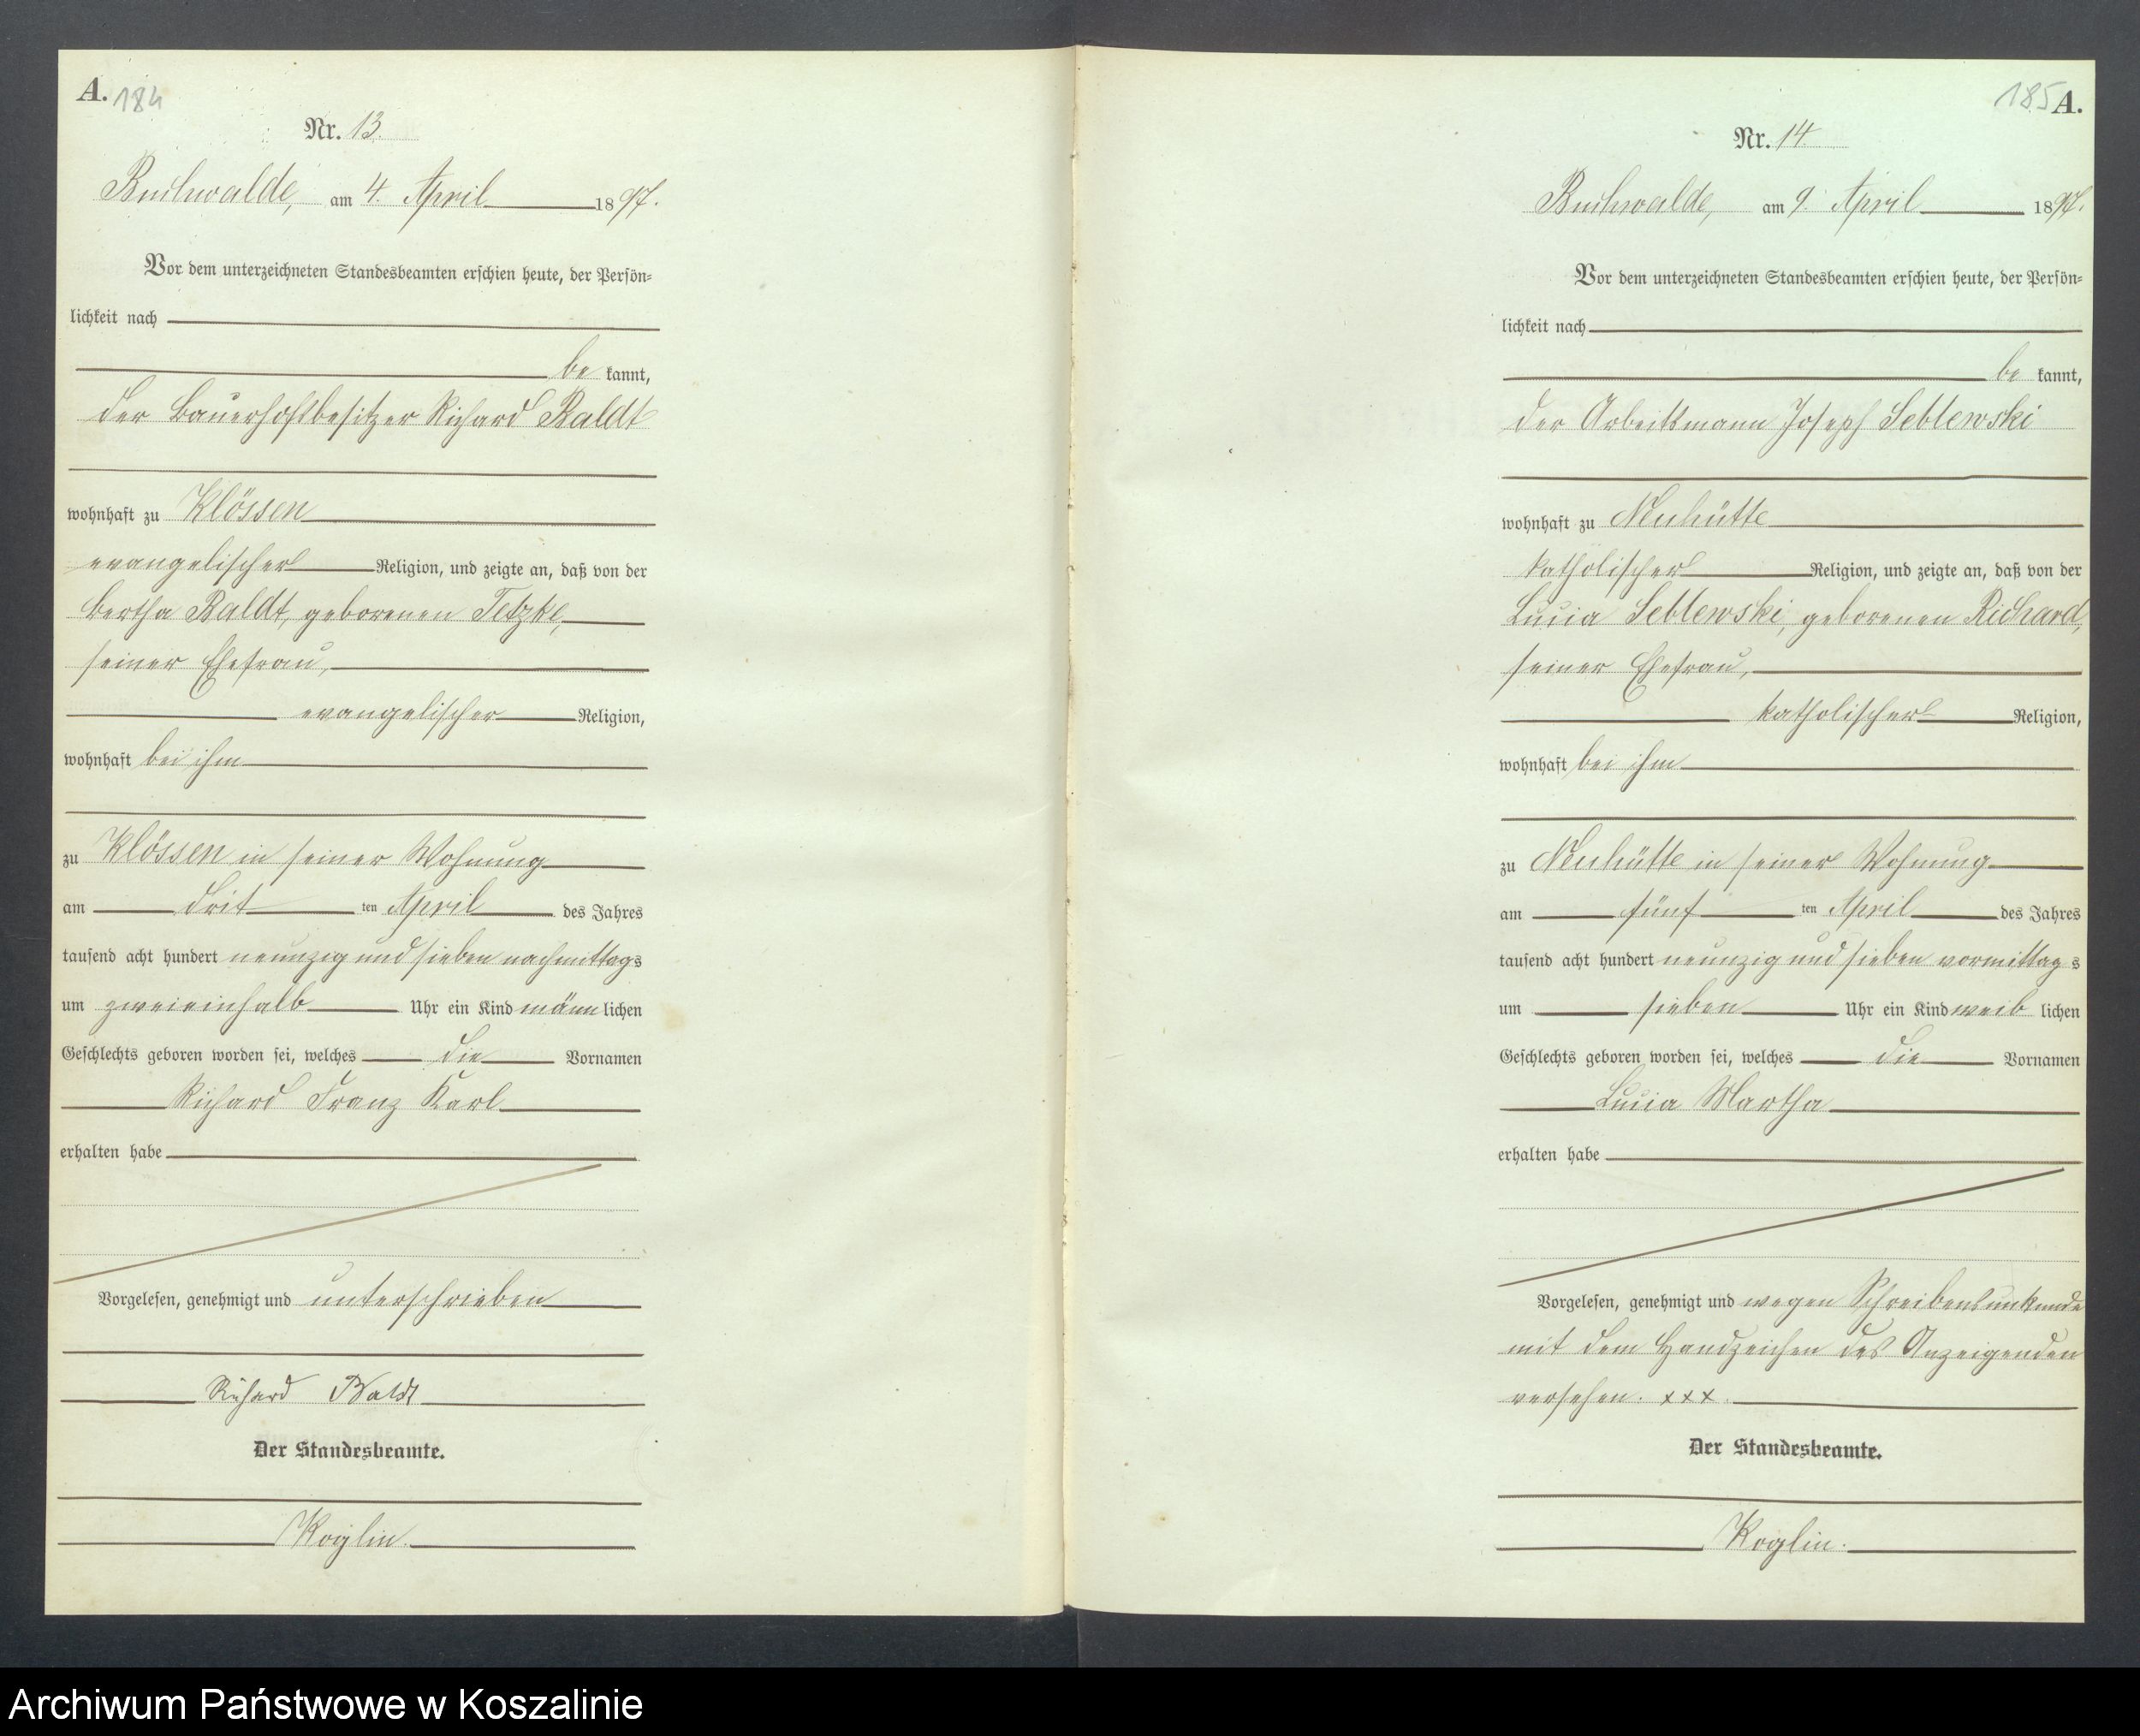 A. 184
Nr. 13.
Buchwalde, am 4. April 1897.
Vor dem unterzeichneten Standesbeamten erschien heute, der Persön-
lichkeit nach
be kannt,
der Bauerhofsbesitzer Richard Baldt
wohnhaft zu Klössen
evangelischer Religion, und zeigte an, daß von der
Bertha Baldt, geborenen Tetzke,
seiner Ehefrau,
evangelischer Religion,
wohnhaft bei ihm
zu Klössen in seiner Wohnung
am dritten April des Jahres
tausend acht hundert neunzig und sieben nachmittags
um zweieinhalb Uhr ein Kind männlichen
Geschlechts geboren worden sei, welches die Vornamen
Richard Franz Karl
erhalten habe
Vorgelesen, genehmigt und unterschrieben
Richard Baldt
Der Standesbeamte.
Koglin.
185 A.
Nr. 14
Buchwalde, am 9. April 1897.
Vor dem unterzeichneten Standesbeamten erschien heute, der Persön-
lichkeit nach
be kannt,
der Arbeitsmann Joseph Seblewski
wohnhaft zu Neuhütte
katholischer Religion, und zeigte an, daß von der
Lucia Seblewski, geborenen Richard,
seiner Ehefrau,
katholischer Religion,
wohnhaft bei ihm
zu Neuhütte in seiner Wohnung
am fünften April des Jahres
tausend acht hundert neunzig und sieben vormittags
um sieben Uhr ein Kind weib lichen
Geschlechts geboren worden sei, welches die Vornamen
Lucia Martha
erhalten habe
Vorgelesen, genehmigt und wegen Schreibensunkunde
mit dem Handzeichen des Anzeigenden
versehen. xxx.
Der Standesbeamte.
Koglin.
Archiwum Państwowe w Koszalinie